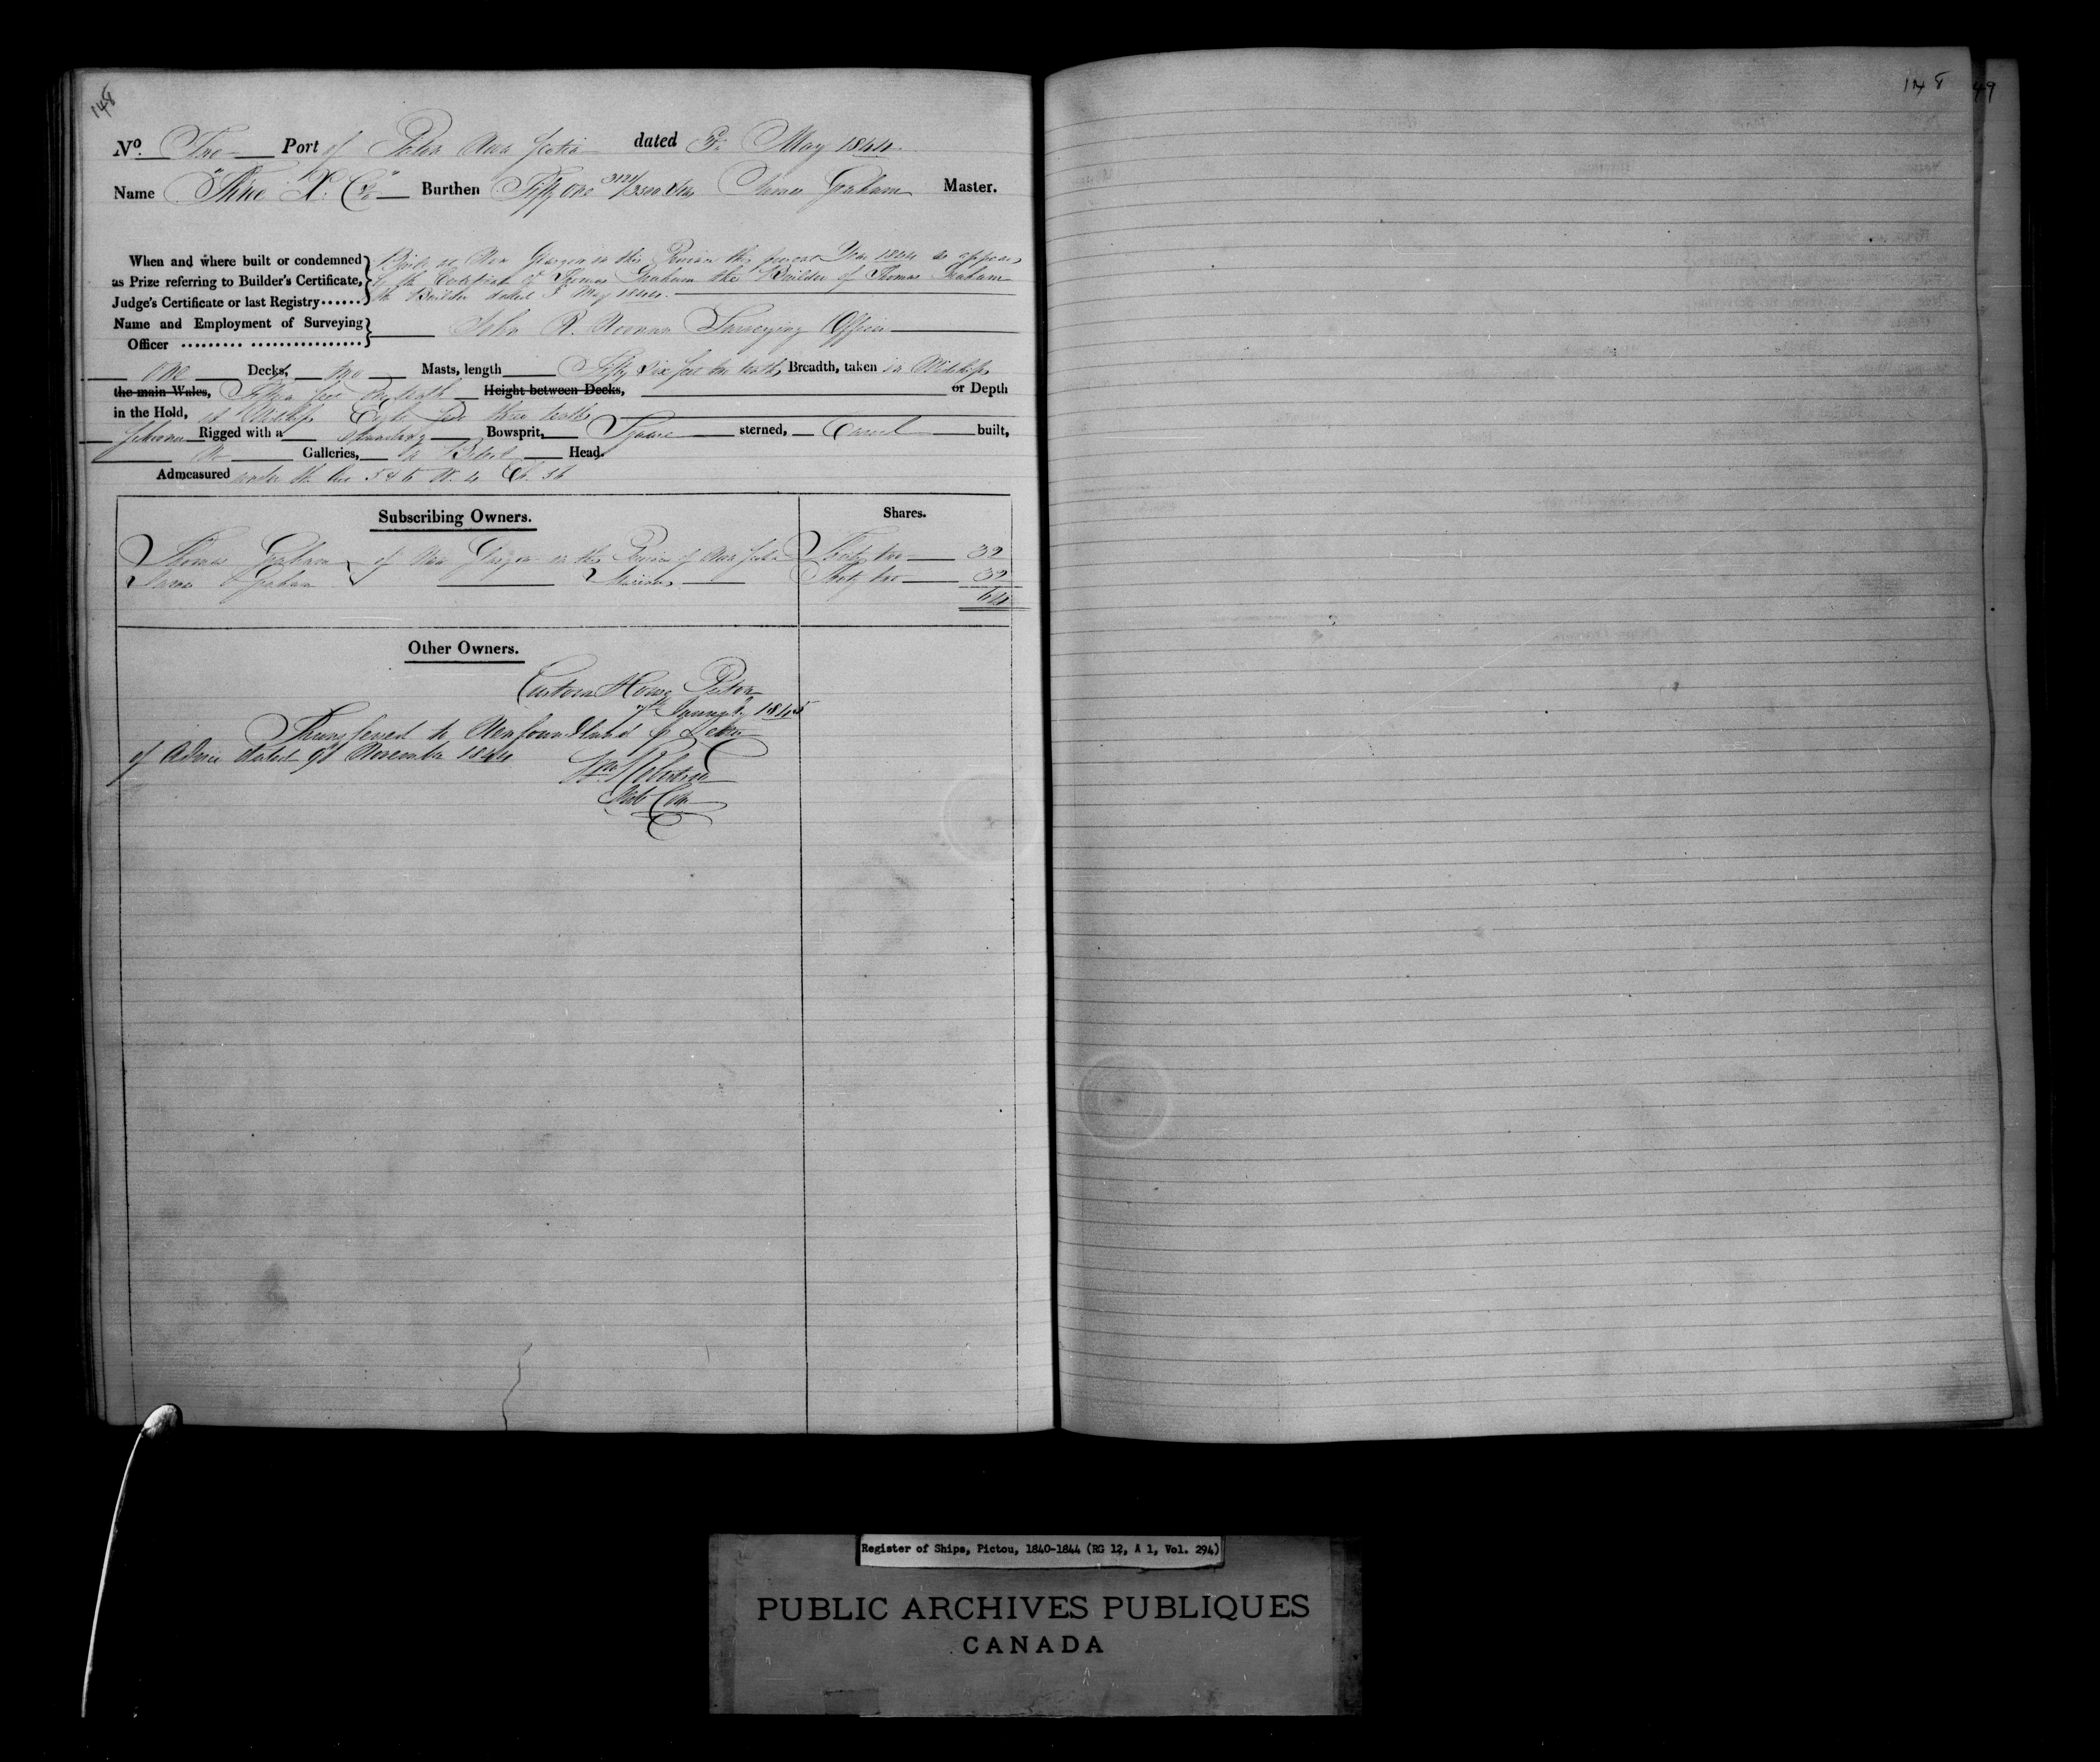 148
148
49
No. Two Port of Pictou Nova Scotia dated May 1844
Name Burthen Fifty One 3121/3500 Tons James Graham Master.
When and where built or condemned
as Prize referring to Builder's Certificate,
Judge's Certificate or last Registry......
Built at New Glasgow in this Province this present Year 1844 as appears
by the Certificate of Thomas Graham the Builder of Thomas Graham
the Builder dated May 1844.
Name and Employment of Surveying
Officer ......... ................
John R. Noonan Surveying Officer
One Decks, two Masts, length Fifty Six feet ten tenths, Breadth, taken in Midships
the main Wales, Fifteen feet tenth Height between Decks, or Depth
in the Hold, at Midships Eight feet three tenths
Schooner Rigged with a standing Bowsprit, Square sterned, Carvel built,
No Galleries, a Billet Head.
Admeasured under the Act 5 & 6 W. 4 Ch. 56
Subscribing Owners.
Shares.
Thomas Graham of New Glasgow in the Province of Nova Scotia Thirty two 32
James Graham Mariners Thirty two 32
64
Other Owners.
Custom House Pictou
January 1845
Transferred to Newfoundland p Letter
of Advice dated November 1844
Wm Robertson
Sub Coll
Register of Ships, Pictou, 1840-1844 (RG 12, A 1, Vol. 294)
PUBLIC ARCHIVES PUBLIQUES
CANADA